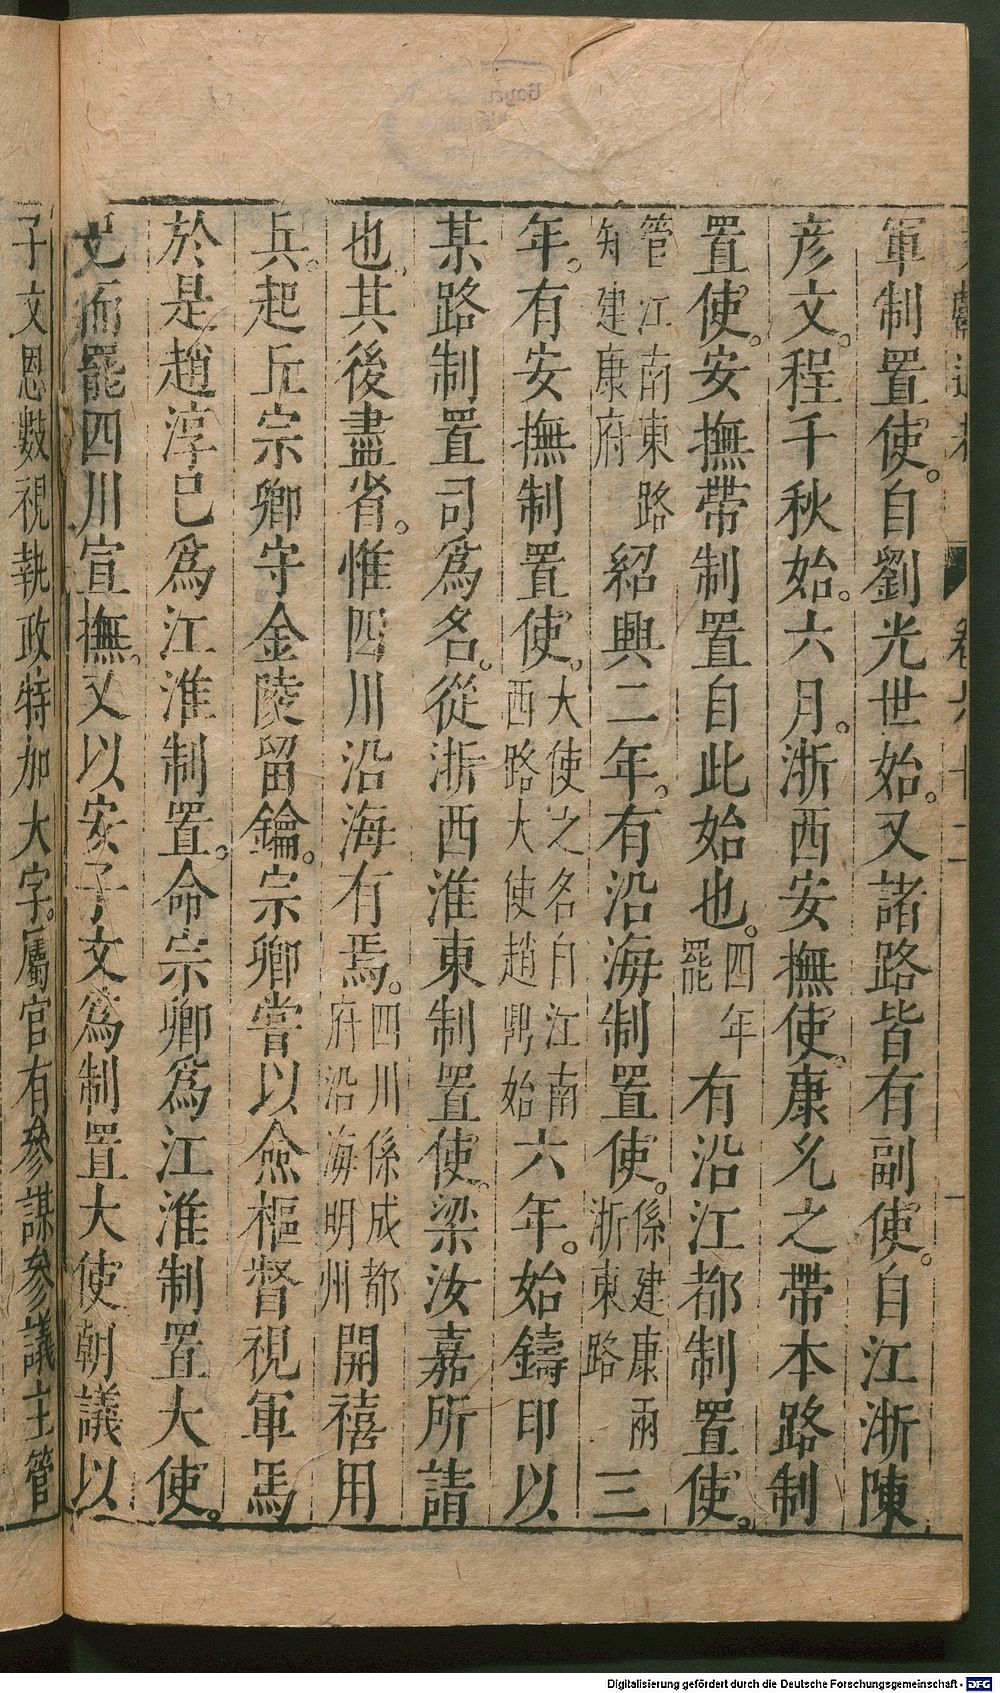 卷六十二
軍制置使。自劉光世始。又諸路皆有副使。自江浙陳
彥文。程千秋始。六月。浙西安撫使。康允之帶本路制
置使。安撫帶制置自此始也。四年罷有沿江都制置使。
管江南東路知建康府紹興二年。有沿海制置使。係建康兩浙東路三
年。有安撫制置使。大使之名自江南西路大使趙鼎始六年。始鑄印以
某路制置司爲名。從浙西淮東制置使。梁汝嘉所請
也。其後盡省。惟四川沿海有焉。四川係成都府沿海明州開禧用
兵。起丘宗卿守金陵留鑰。宗卿嘗以僉樞督視軍馬
於是趙淳已爲江淮制置。命宗卿爲江淮制置大使。
兄而罷四川宣撫。又以安子文爲制置大使朝議以
子文恩數視執政特加大字。屬官有參謀參議主管
Digitalisierung gefördert durch die Deutsche Forschungsgemeinschaft - DFG